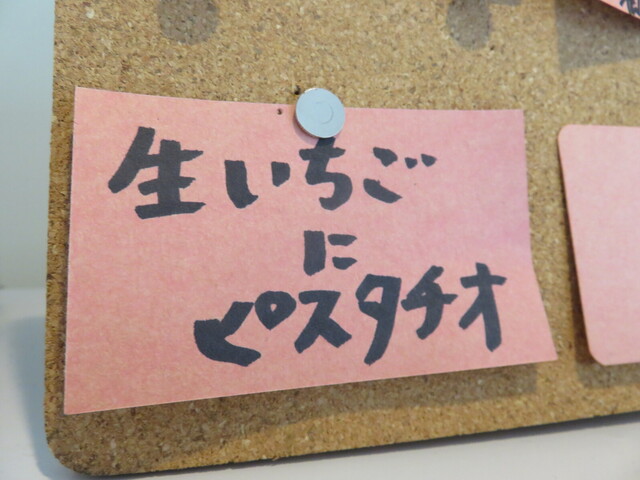 生いちご
に
ピスタチオ